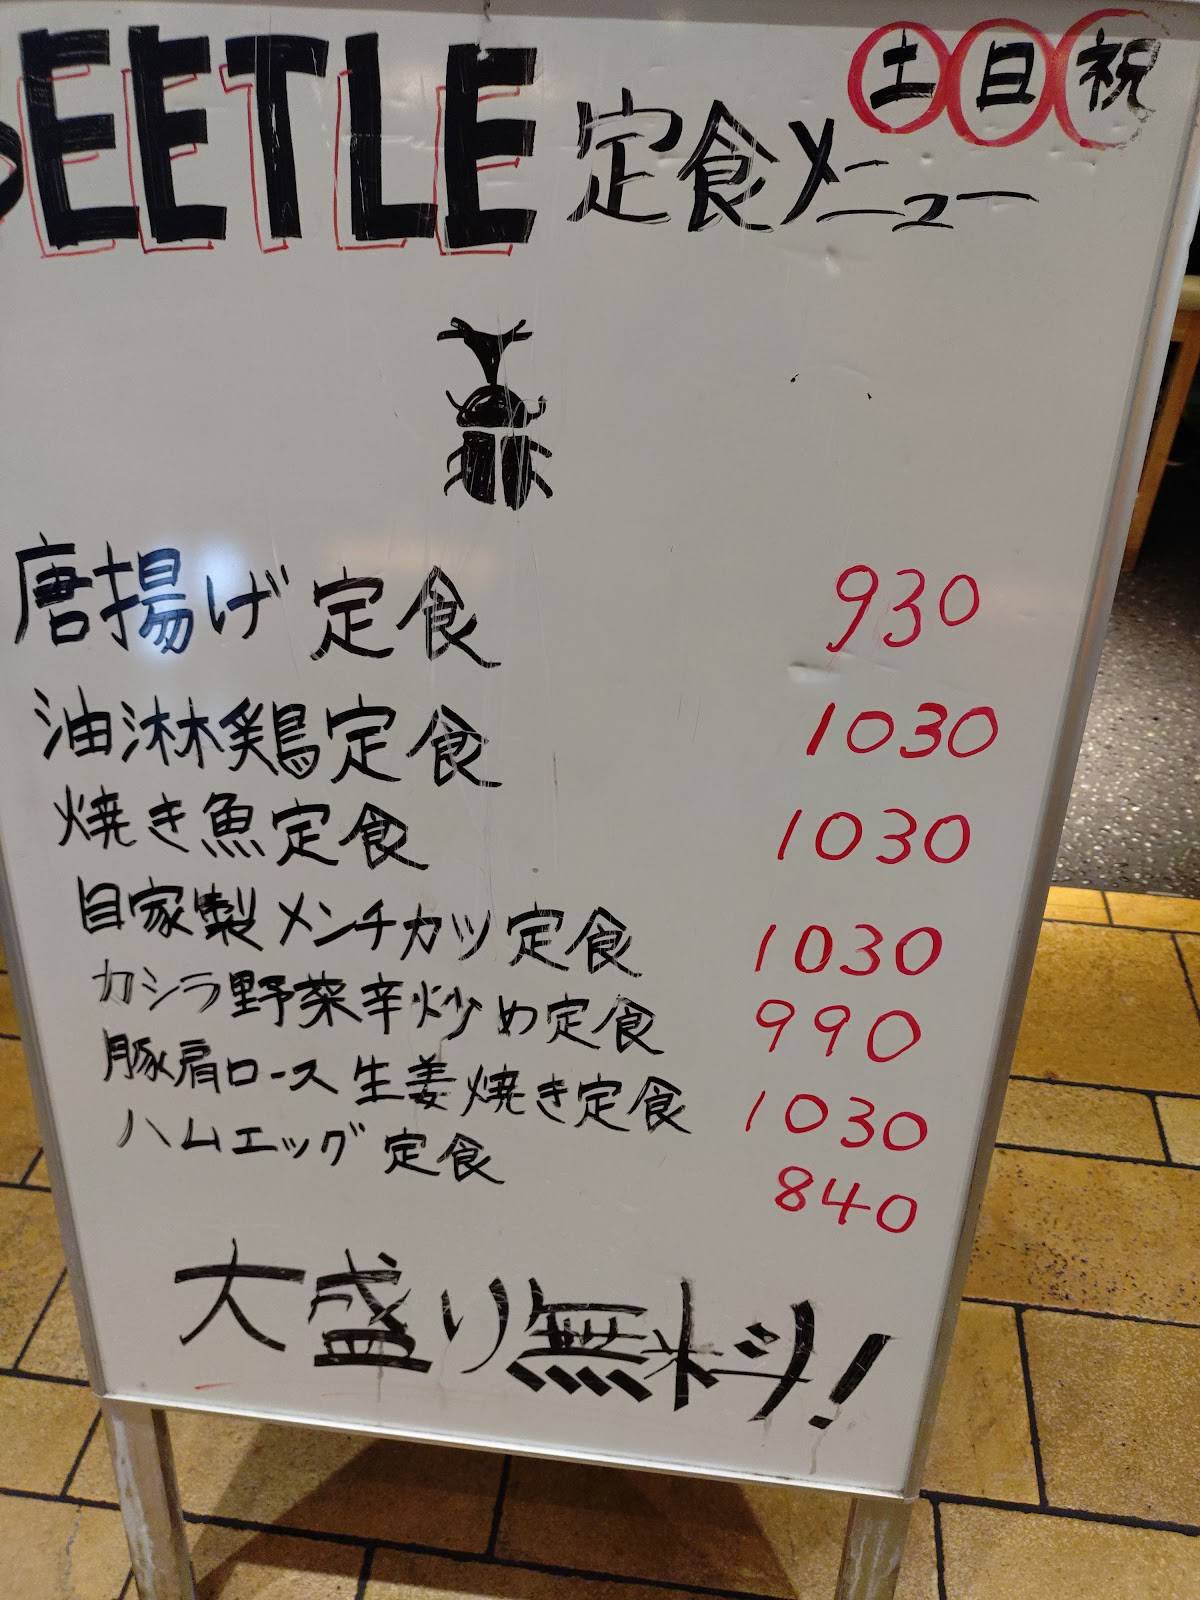 BEETLE 定食メニュー
土 日 祝
唐揚げ定食 930
油淋鶏定食 1030
焼き魚定食 1030
自家製メンチカツ定食 1030
カシラ野菜辛炒め定食 990
豚肩ロース生姜焼き定食 1030
ハムエッグ定食 840
大盛り無料!